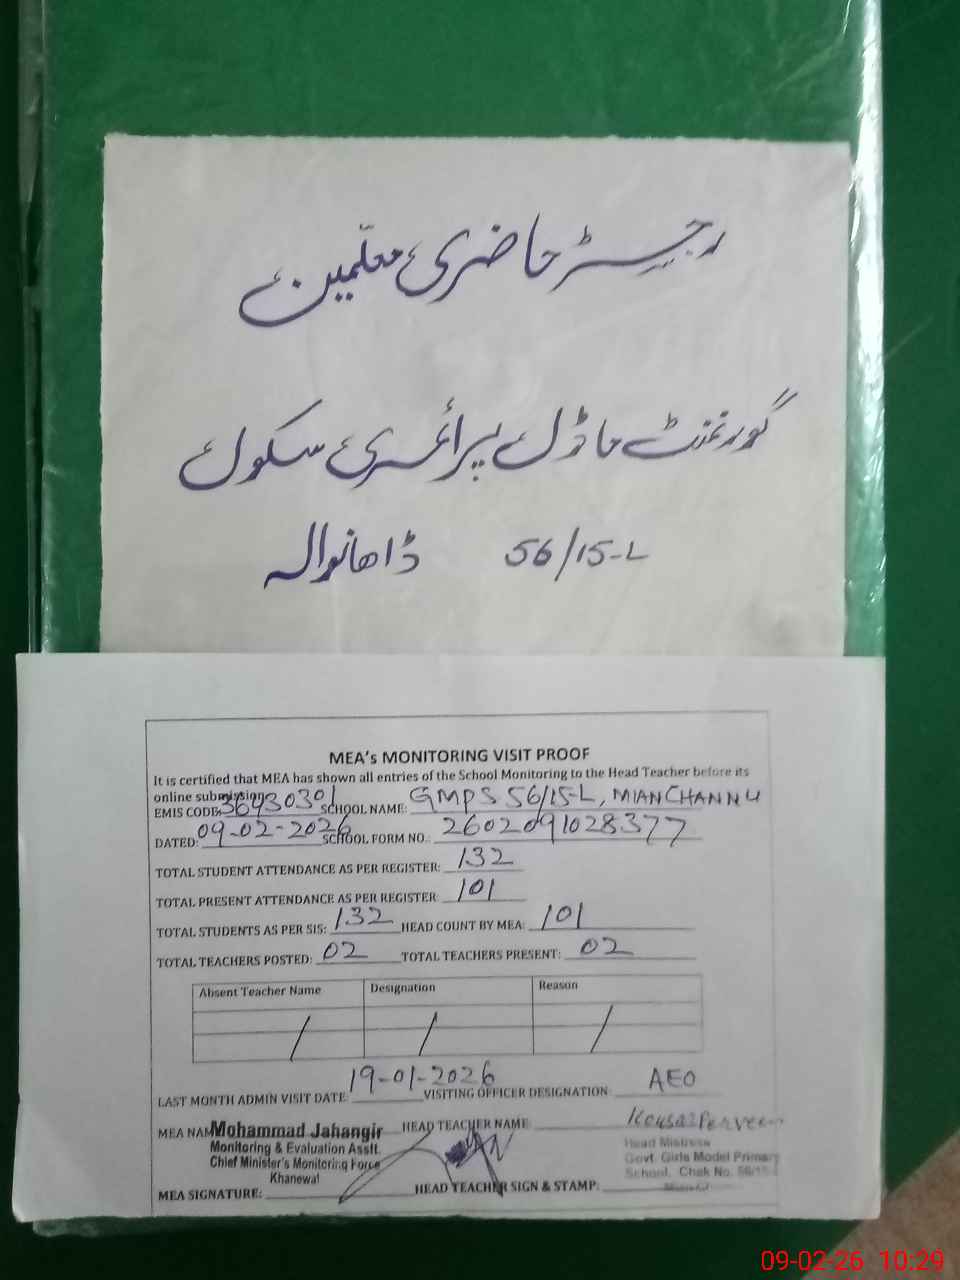 رجسٹر حاضری معلمین
گورنمنٹ ماڈل پرائمری سکول
56/15-L ڈاھانوالہ
MEA's MONITORING VISIT PROOF
It is certified that MEA has shown all entries of the School Monitoring to the Head Teacher before its
online submission
EMIS CODE: 36430301 SCHOOL NAME: GMPS 56/15-L, MIANCHANNU
DATED: 09-02-2026 SCHOOL FORM NO.: 2602091028377
TOTAL STUDENT ATTENDANCE AS PER REGISTER: 132
TOTAL PRESENT ATTENDANCE AS PER REGISTER: 101
TOTAL STUDENTS AS PER SIS: 132 HEAD COUNT BY MEA: 101
TOTAL TEACHERS POSTED: 02 TOTAL TEACHERS PRESENT: 02
Absent Teacher Name Designation Reason
/ / /
LAST MONTH ADMIN VISIT DATE: 19-01-2026 VISITING OFFICER DESIGNATION: AEO
MEA NAM Mohammad Jahangir HEAD TEACHER NAME Kousar Perveen
Monitoring & Evaluation Asstt. Head Mistress
Chief Minister's Monitoring Force Govt. Girls Model Primary
Khanewal School, Chak No. 56/15-
MEA SIGNATURE: HEAD TEACHER SIGN & STAMP:
09-02-26 10:29